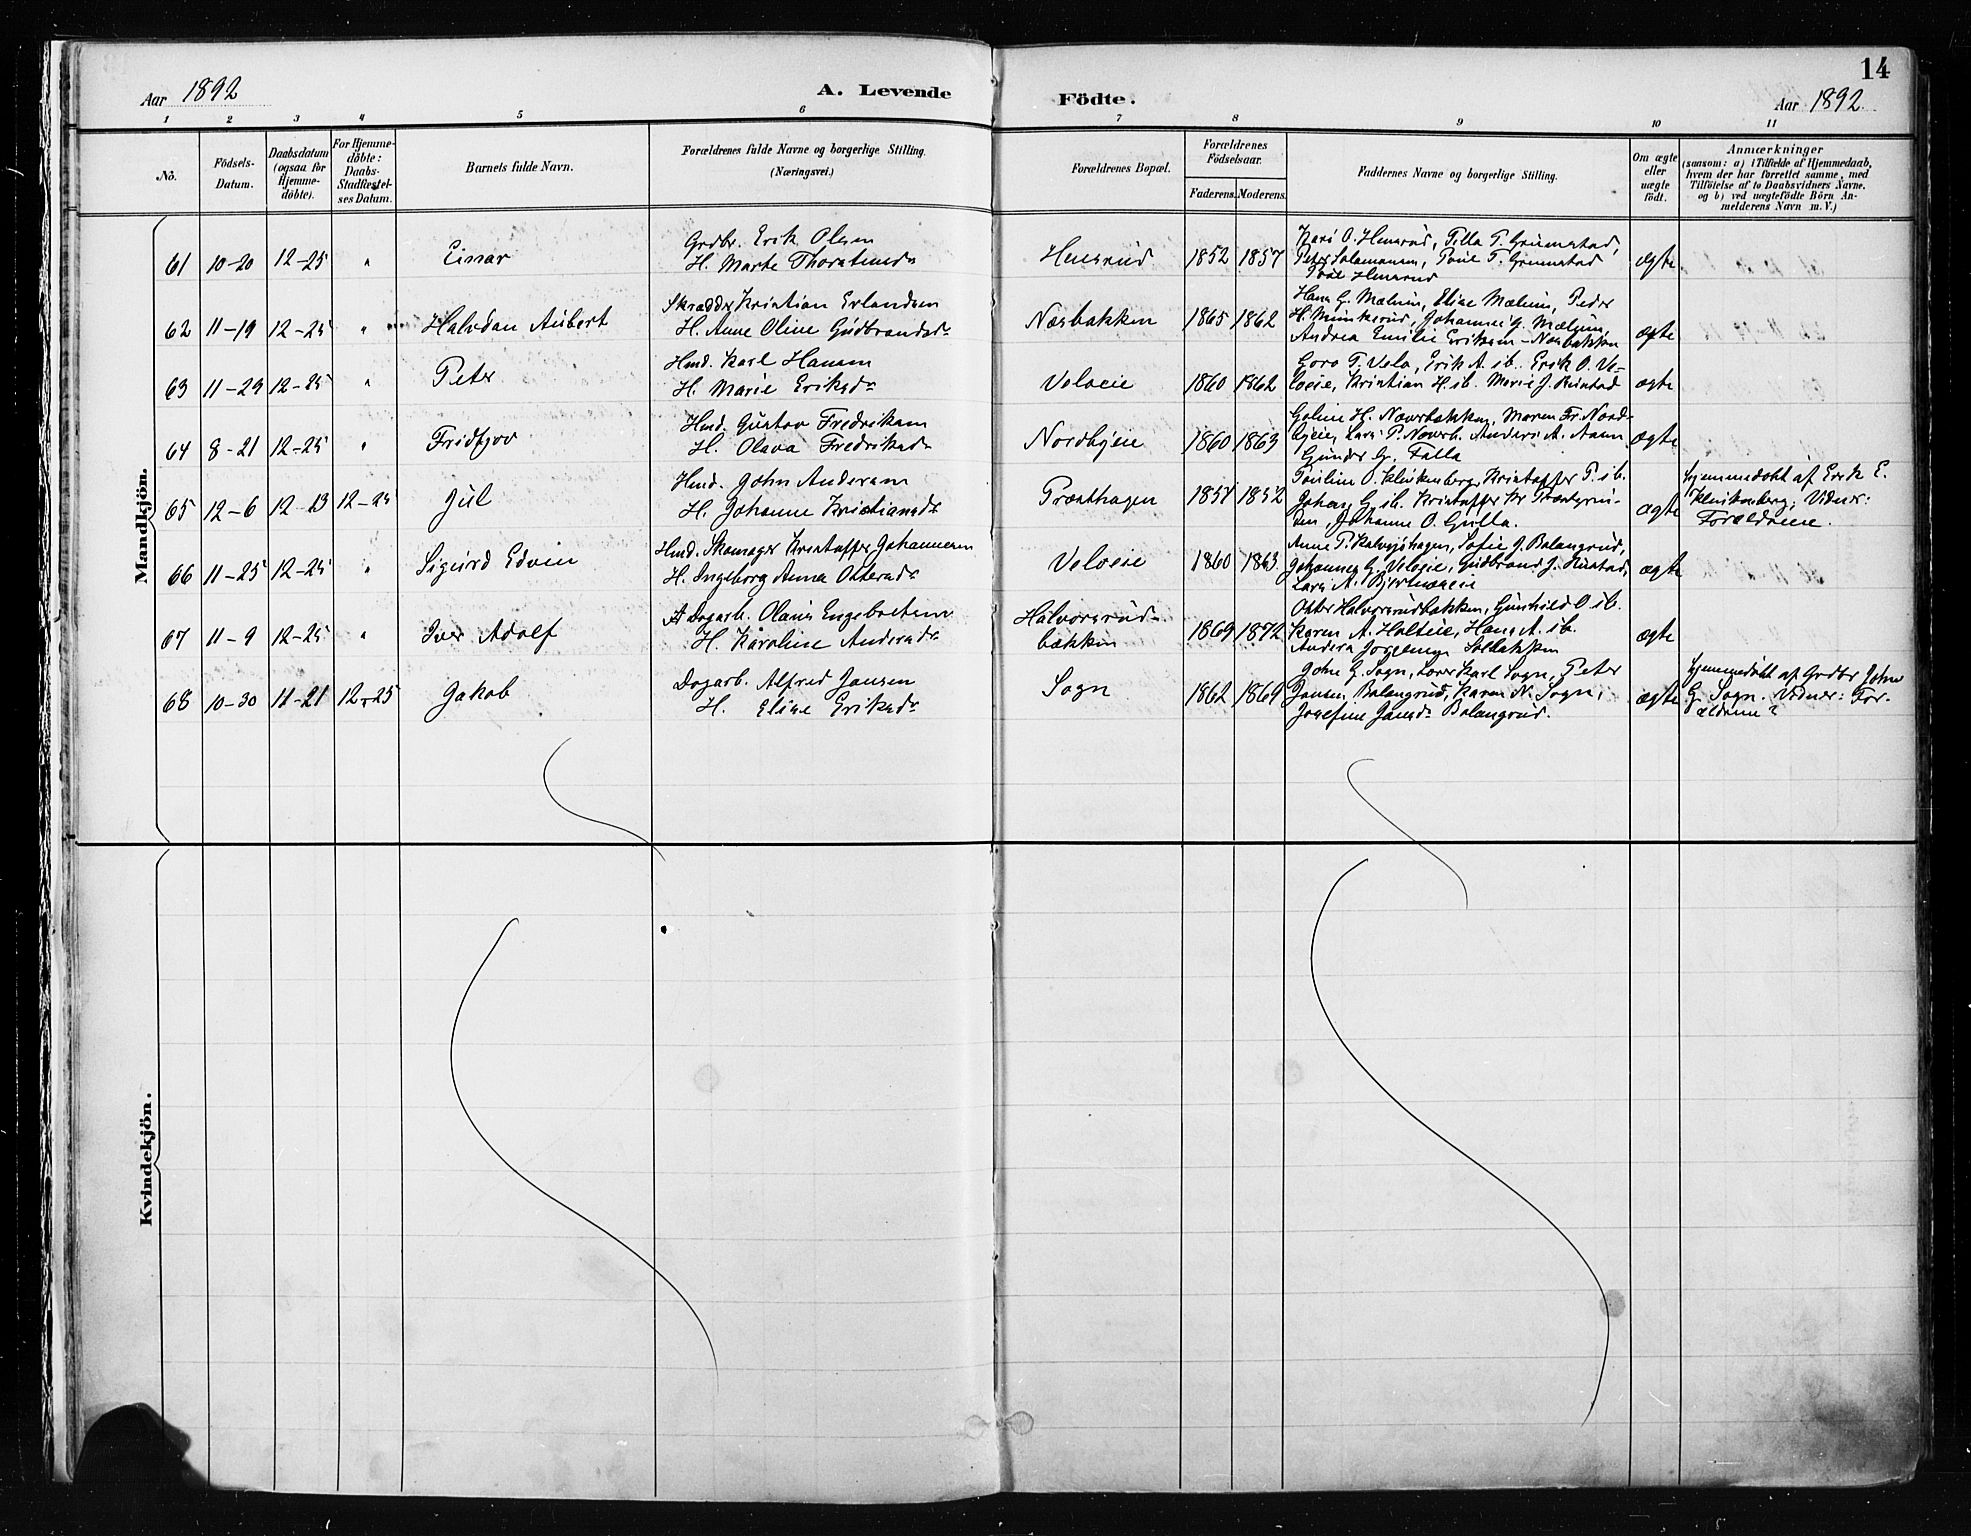 14
Aar 1892
A. Levende
Födte.
Aar 1892
1 2 3 4 5 6 7 8 9 10 11
No.
Födsels-
Datum.
Daabsdatum
(ogsaa for
Hjemme-
döbte).
For Hjemme-
döbte:
Daabs-
Stadfæstel-
ses Datum.
Barnets fulde Navn.
Forældrenes fulde Navne og borgerlige Stilling.
(Næringsvei.)
Forældrenes Bopæl.
Forældrenes
Födselsaar.
Faderens. Moderens.
Faddernes Navne og borgerlige Stilling.
Om ægte
eller
uægte
født.
Anmærkninger
(saasom: a) i Tilfælde af Hjemmedaab,
hvem der har forrettet samme, med
Tilföielse af to Daabsvidners Navne.
og b) ved uægtefödte Börn An-
melderens Navn m. V.)
Mandkjön.
61 10-20 12-25 " Einar
Grdbr. Erik Olsen
H. Marte Thorstensd.
Hensrud 1852 1857
Kari O. Hensrud, Tilla T. Grimstad,
Peter Salamonsen, Poul T. Grimstad
ægte
62 11-19 12-25 " Halvdan Aubert
Skrædder Kristian Erlandsen
H. Anne Oline Gudbrandsd.
Næsbakken 1865 1862
Hans G. Mælum, Elise Mælum, Peder
H. Munkerud, Johannes G. Mælum,
Andrea Emilie Eriksen-Næsbakken
ægte
63 11-29 12-25 " Peter
Hmd. Karl Hansen
H. Marie Eriksd.
Veloeie 1860 1862
Goro T. Velo, Erik A. ib. Erik O. Ve-
loeie, Kristian H. ib. Marie J. Rustad
ægte
64 8-21 12-25 " Fridtjov
Hmd. Gustav Fredriksen
H. Olava Fredriksd.
Nordbyeie 1860 1863
Goline H. Næverbakken, Maren Fr. Nord-
byeie, Lars P. Næverb. Anders A.
Gunder G. Falla
ægte
65 12-6 12-13 12-25 Jul
Hmd. John Andersen
H. Johanne Kristiansd.
Præsthagen 1857 1852
Pauline O. Klinkenberg, Kristoffer P. ib.
Johans G. ib. Kristoffer Kr.
Johanne O. Gulla.
ægte
Hjemmedøbt af Erik E.
Klinkenberg, Vidner:
Forældrene.
66 11-25 12-25 " Sigurd Edvin
Hmd. Skomager Kristoffer Johannesen
H. Ingeborg Anna Ottersd.
Veloeie 1860 1863
Anne P. Kalvsjøhagen, Sofie J. Balangrud,
Johannes G. Veloeie, Gudbrand J. Rustad,
Lars A.
ægte
67 11-9 12-25 " Iver Adolf
Dagarb. Olaus Engebretsen
H. Karoline Andersd.
Halvorsrud-
bakken
1869 1872
Otter Halvorsrudbakken, Gunhild O. ib.
Karen A. Holteie, Hans A. ib.
Anders Jørgensen Solbakken
ægte
68 10-30 11-21 12-25 Jakob
Dagarb. Alfred Jansen
H. Elise Eriksd.
Sogn 1862 1869
John G. Sogn, Lars Karl Sogn, Peter
Jansen, Balangrud, Karen N. Sogn,
Josefine Jansd. Balangrud.
ægte
Hjemmedøbt af Grdbr John
G. Sogn. Vidner: For-
ældrene?
Kvindekjön.